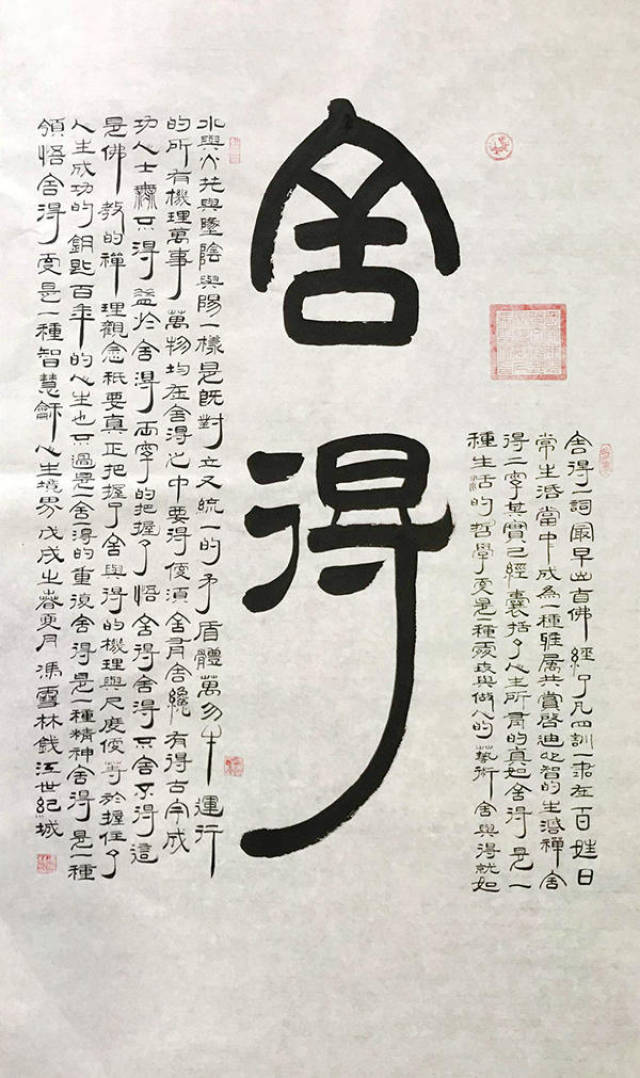 舍得
舍得一詞最早出自佛經了凡四訓一書在百姓日
常生活當中成為一種雅屬共賞啓迪心智的生活禪舍
得二字其實已經囊括了人生所有的真知舍得是一
種生活的哲學更是一種處世與做人的藝術舍與得就如
水與火天與墬陰與陽一樣是既對立又統一的矛盾體萬物運行
的所有機理萬事萬物均在舍得之中要得便須舍有舍纔有得古今成
功人士無不得益於舍得兩字的把握了悟舍得舍得不舍不得這
是佛教的禪理觀念衹要真正把握了舍與得的機理與尺度便等於握住了
人生成功的鑰匙百年的人生也不過是一舍一得的重復舍得是一種精神舍得是一種
領悟舍得更是一種智慧龢人生境界戊戌之春月馮雪林錢江世紀城